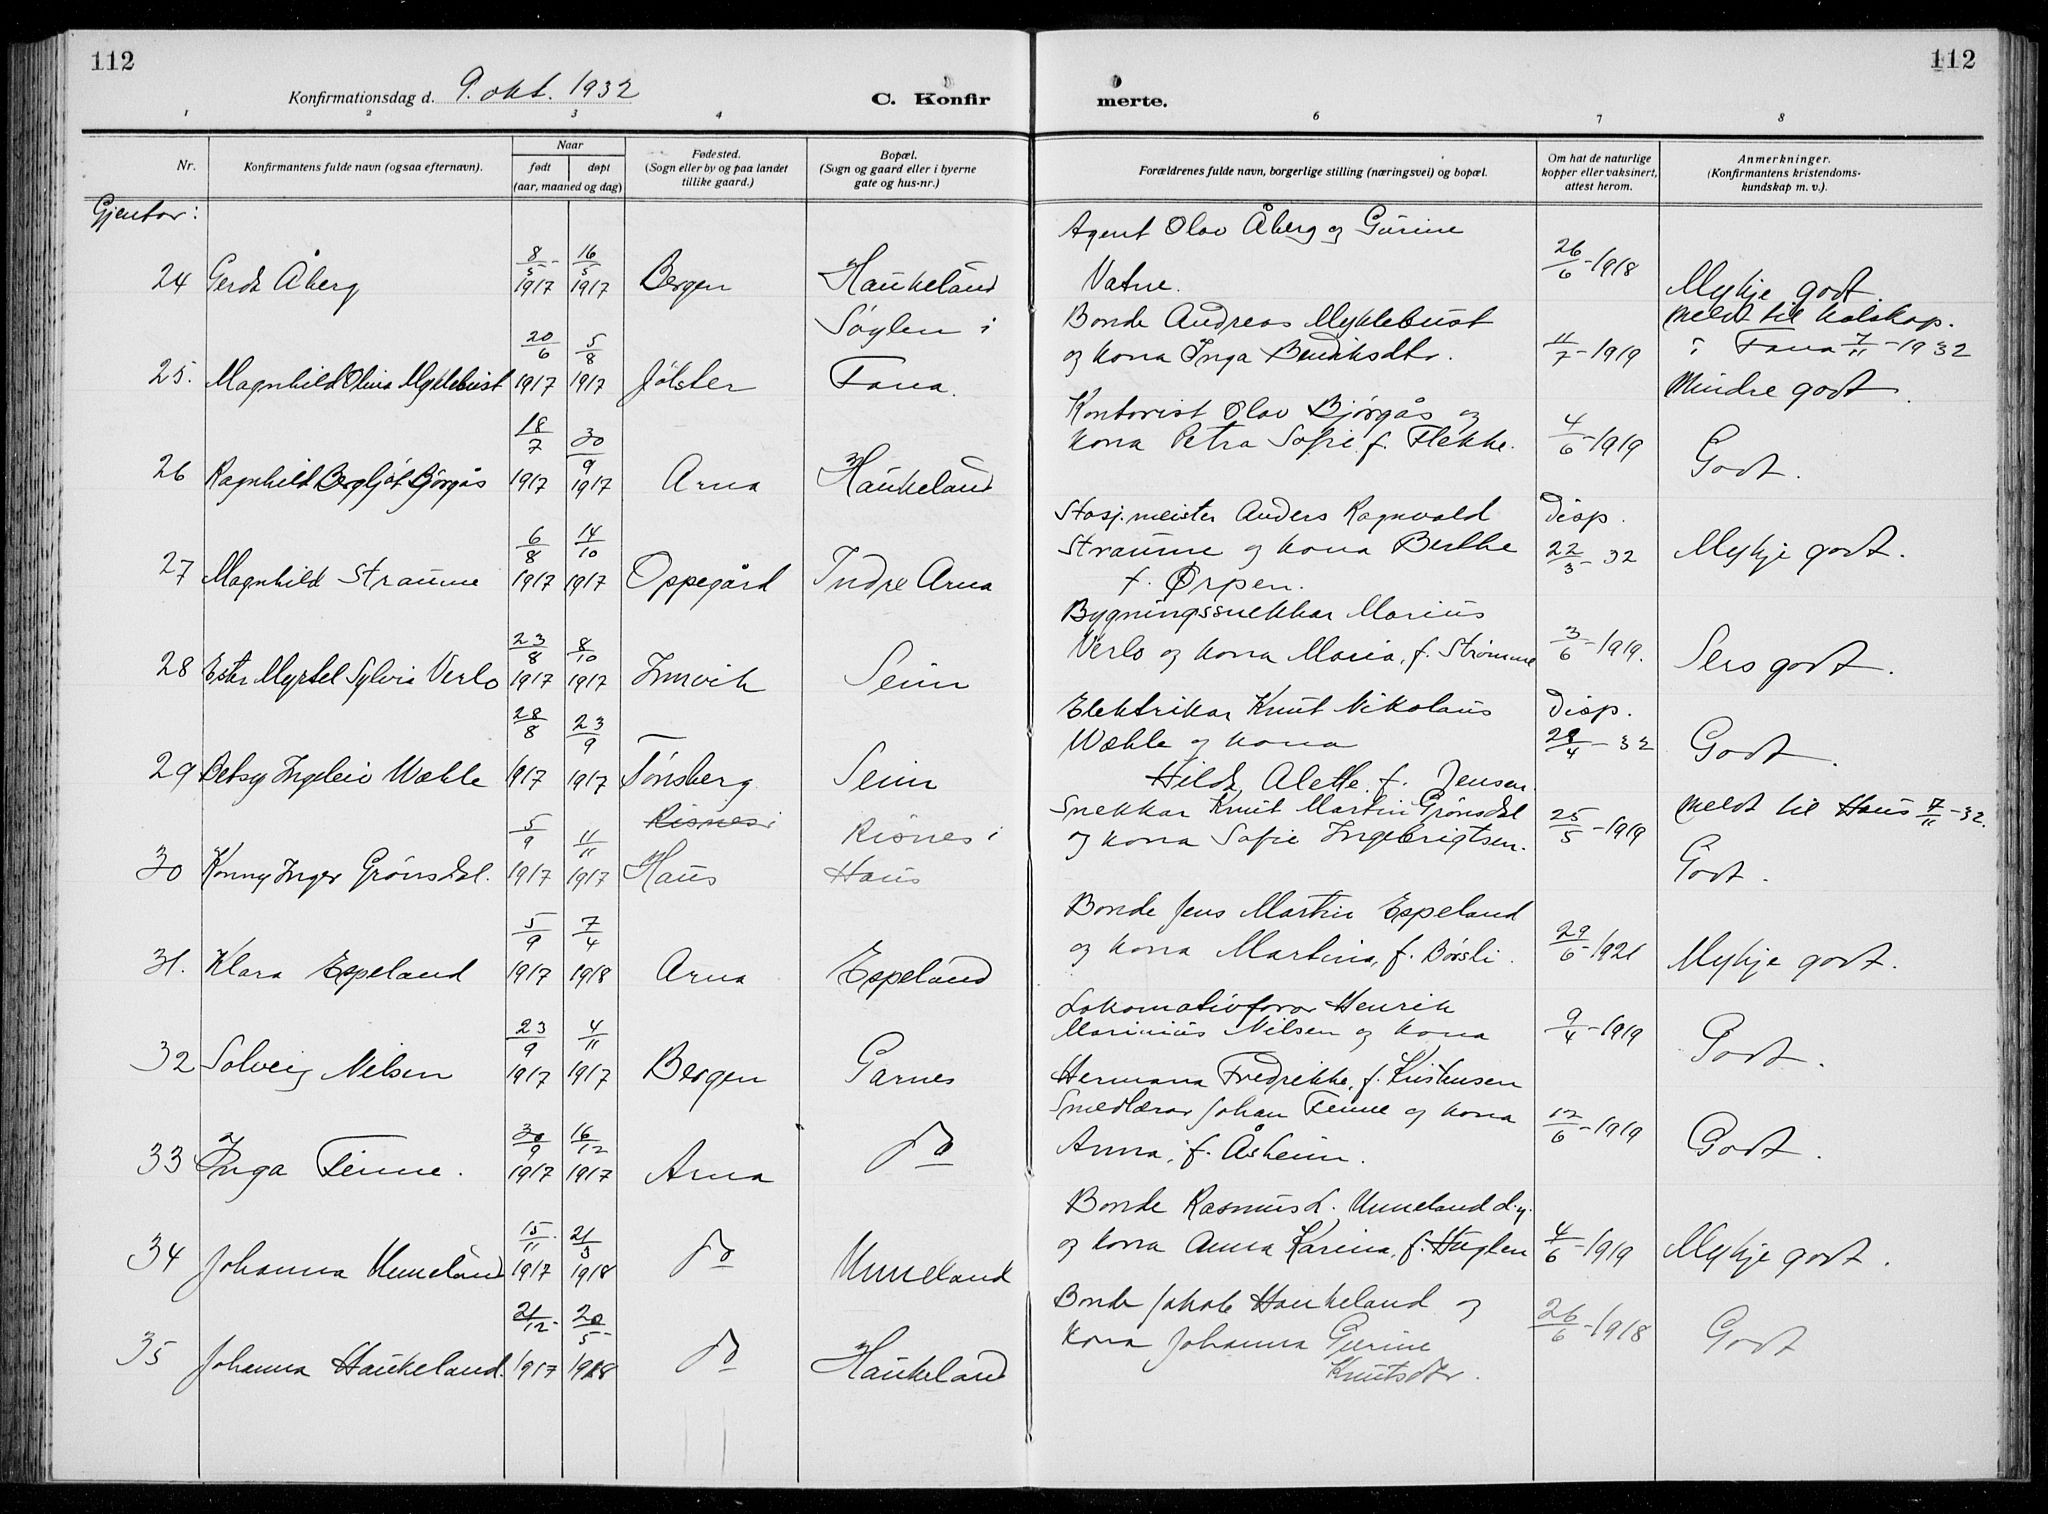 112
112
Konfirmationsdag d. 9. okt. 1932
C. Konfir
merte.
1 2 3 4 5 6 7 8
Nr.
Konfirmantens fulde navn (ogsaa efternavn).
Naar
født
døpt
(aar, maaned og dag)
Fødested.
(Sogn eller by og paa landet
tillike gaard.)
Bopæl.
(Sogn og gaard eller i byerne
gate og hus-nr.)
Forældrenes fulde navn, borgerlige stilling (næringsvei) og bopæl.
Om hat de naturlige
kopper eller vaksinert,
attest herom.
Anmerkninger.
(Konfirmantens kristendoms-
kundskap m. v.).
Gjentor:
24 Gerda Åberg 8/5-1917 16/5 1917 Bergen Haukeland
Agent Olav Åberg og Gurine
Vatne.
26/6-1918
Mykje godt.
25. Magnhild Olina Myklebust 20/6 1917 5/8 1917 Jølster
Søylen i
Fana.
Bonde Andreas Myklebust
og kona Inga Bendiksdtr.
11/7-1919
Meldt til kolskap.
i Fana 7/11-1932
Mindre godt.
26 Ragnhild Bergljot Bjørgås 18/7 1917 30/9 1917 Arna Haukeland
Kontorist Olav Bjørgås og
kona Petra Sofie f. Flekke.
4/6-1919
Godt.
27 Magnhild Straume 6/8 1917 14/10 1917 Oppegård Indre Arna
Stasj.meister Anders Ragnvald
Straume og kona Berthe
f. Ørpen.
Disp.
22/3-32
Mykje godt.
28 Ester Myrtel Sylvia Verlo 23/8 1917 8/10 1917 Innvik Seim
Bygningssnekkar Marius
Verlo og kona Maria, f. Strømme
3/6-1919.
Sers godt.
29 Betsy Ingeleiv Wæhle 28/8 1917 23/9 1917 Tønsberg Seim
Elektrikar Knut Nikolaus
Wæhle og kona
Hilda Alette f. Jensen.
Disp.
28/4-32
Godt.
30 Konny Inger Grønsdal. 5/9 1917 11/11 1917
Risnes i
Haus
Risnes i
Haus
Snekkar Knut Martin Grønsdal
og kona Sofie Ingebrigtsen.
25/5-1919
Meldt til Haus 7/11-32.
Godt.
31. Klara Espeland 5/9 1917 7/4 1918 Arna Espeland
Bonde Jens Martin Espeland
og kona Martina, f. Børsli.
29/6-1921
Mykje godt.
32 Solveig Nilsen 23/9 1917 4/11 1917 Bergen Garnes
Lokomativførar Henrik
Marinius Nilsen og kona
Hermana Fredrikke, f. Kristensen
9/4-1919
Godt.
33 Inga Finne. 30/9 1917 16/12 1917 Arna do
Smedlærar Johan Finne og kona
Anna, f. Åsheim.
12/6-1919
Godt.
34 Johanna Unneland 15/11 1917 21/3 1918 do Unneland
Bonde Rasmus L. Unneland d.y.
og kona Anna Karina, f. Huglen
4/6-1919
Mykje godt.
35 Johanna Haukeland. 21/12-1917 20/5-1918 do Haukeland
Bonde Jakob Haukeland og
kona Johanna Gurine
Knutsdtr.
26/6-1918
Godt